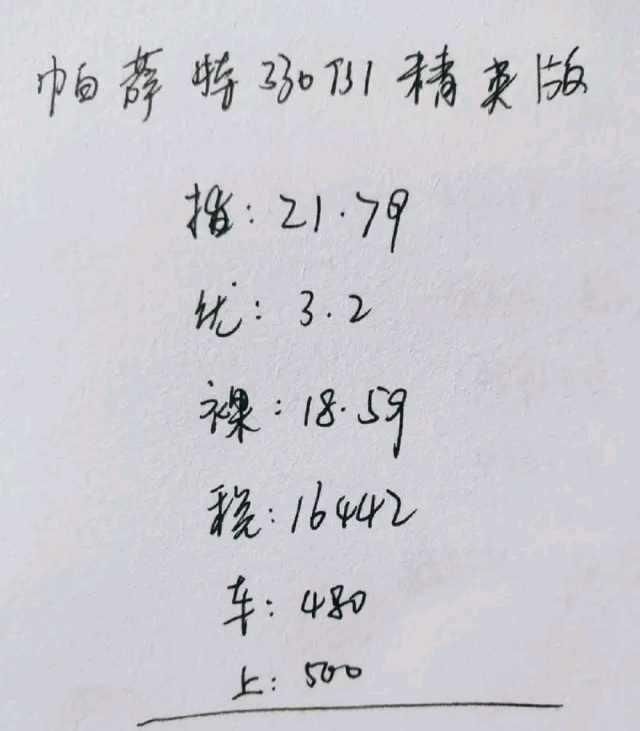 帕萨特330TSI精英版
指: 21.79
优: 3.2
裸: 18.59
税: 16442
车: 480
上: 500